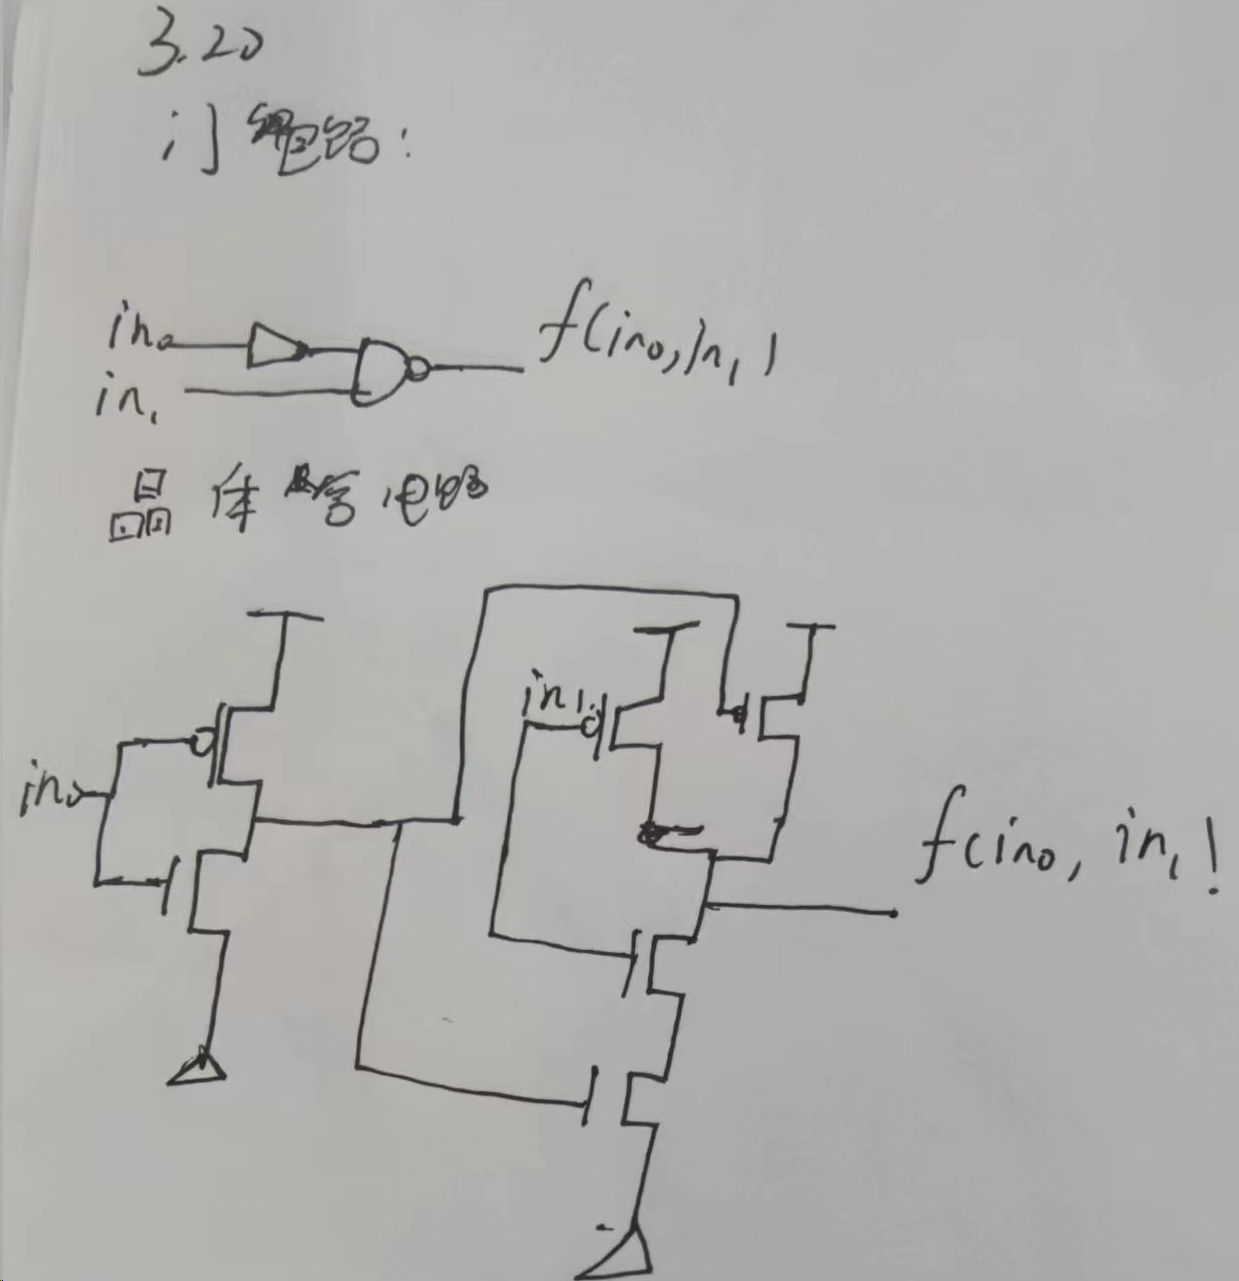 3.20
门电路:
in₀
f(in₀,in₁)
in₁
晶体管电路
in₁
in₀
f(in₀, in₁)